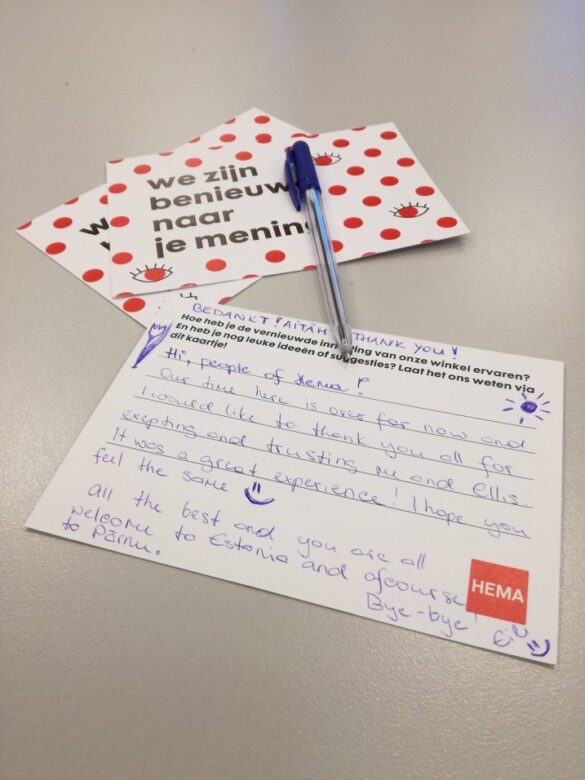 we zijn
benieuw
naar
je menin
w
BEDANKT! AITÄH THANK YOU!
Hoe heb je de vernieuwde inrichting van onze winkel ervaren?
En heb je nog leuke ideeën of suggesties? Laat het ons weten via
dit kaartje!
Hi, people of Hema!
Our time here is over for now and
I would like to thank you all for
exepting and trusting me and Ellis.
It was a great experience! I hope you
feel the same
all the best and you are all
welcome to Estonia and ofcourse
to Pärnu.
Bye-bye!
HEMA